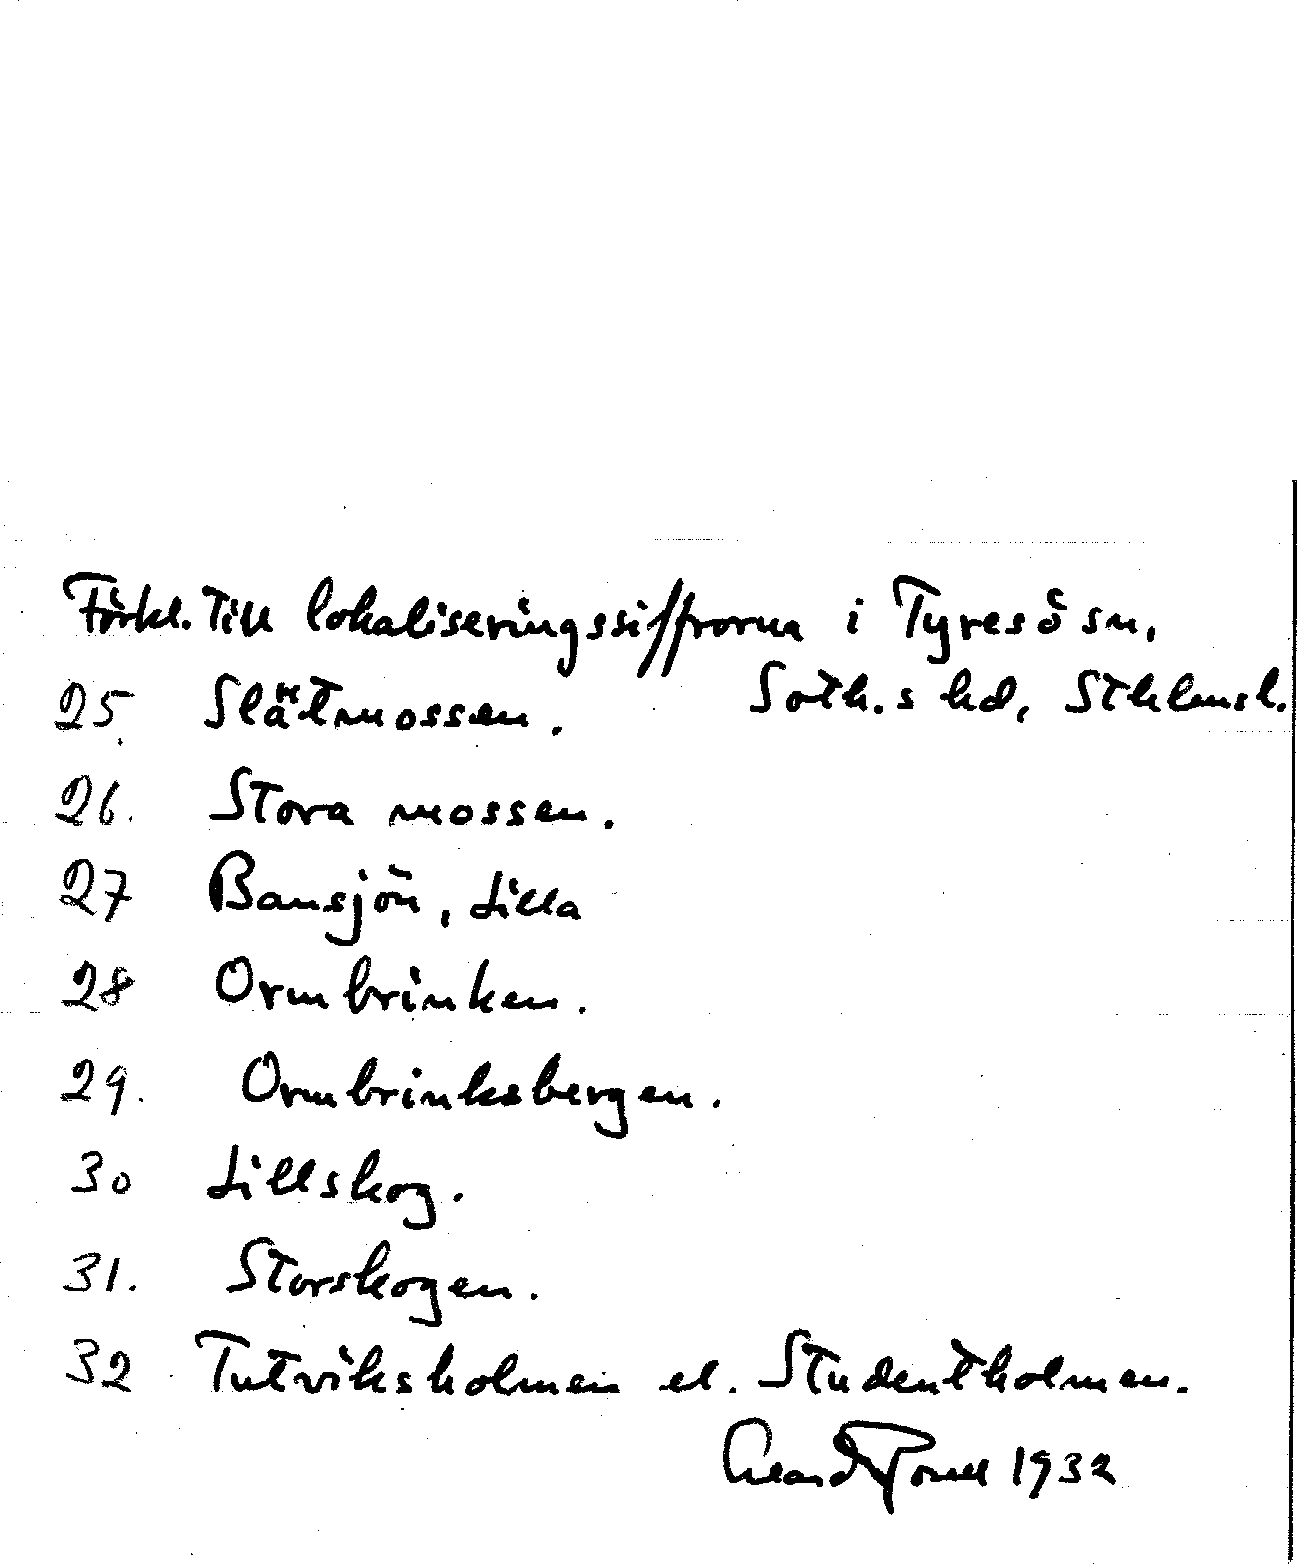 Förkl. till lokaliseringssiffrorna i Tyresö sn,
Soth.s hd, Sthlmsl.
25 Slätmossen.
26. Stora mossen.
27 Bansjön, Lilla
28 Ormbrinken.
29. Ormbrinksbergen.
30 Lillskog.
31. Storskogen.
32 Tutviksholmen el. Studentholmen.
1932